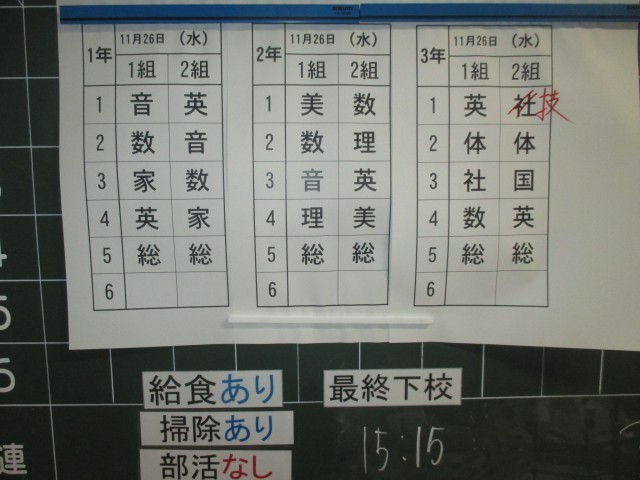 1年 11月26日 (水)
1組 2組
1 音 英
2 数 音
3 家 数
4 英 家
5 総 総
6
2年 11月26日 (水)
1組 2組
1 美 数
2 数 理
3 音 英
4 理 美
5 総 総
6
3年 11月26日 (水)
1組 2組
1 英 社 技
2 体 体
3 社 国
4 数 英
5 総 総
6
給食あり
掃除あり
部活なし
最終下校
15:15
5
5
連